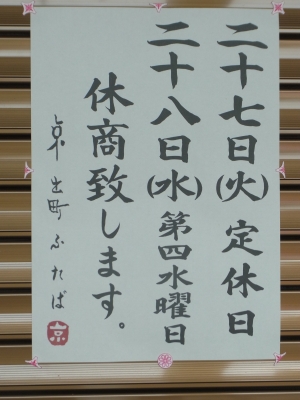 二十七日(火)定休日
二十八日(水)第四水曜日
休商致します。
京 出町ふたば
京